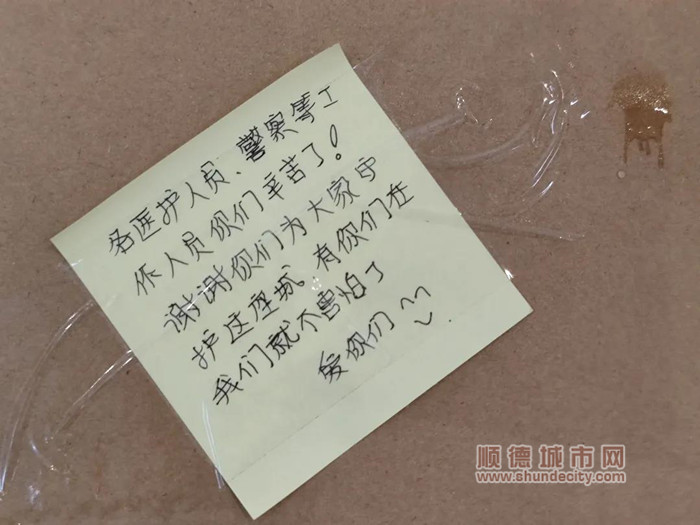 各医护人员、警察等工
作人员你们辛苦了!
谢谢你们为大家守
护这座城 有你们在
我们就不害怕了
爱你们
顺德城市网
www.shundecity.com